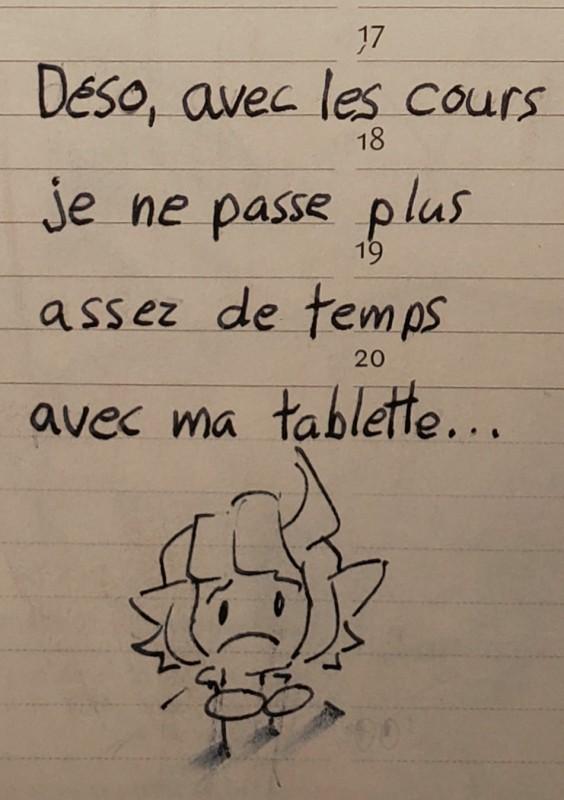 17
Déso, avec les cours
18
je ne passe plus
19
assez de temps
20
avec ma tablette...